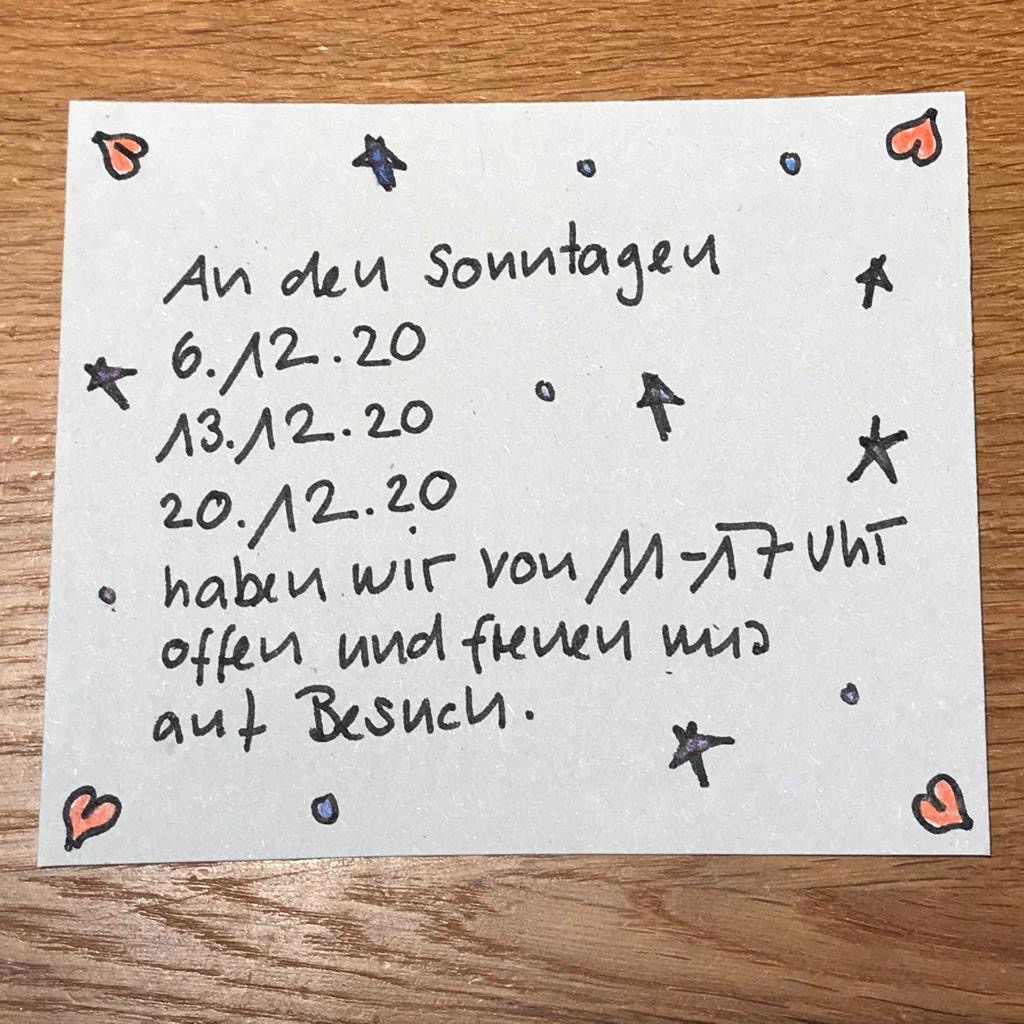 An den Sonntagen
6.12.20
13.12.20
20.12.20
haben wir von 11-17 Uhr
offen und freuen uns
auf Besuch.